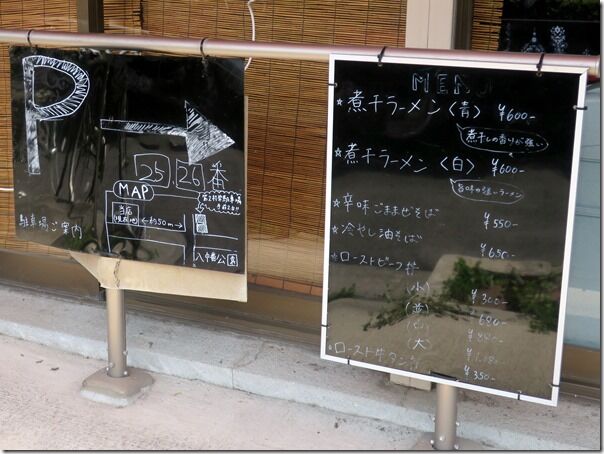 P
25 26 番
MAP
当店
(現在地)
約50m
八幡公園
駐車場ご案内
MENU
☆煮干ラーメン〈青〉 ¥600-
煮干しの香りが強い
☆煮干ラーメン〈白〉 ¥600-
旨味の強いラーメン
☆辛味ごままぜそば ¥550-
☆冷やし油そば ¥650-
☆ローストビーフ丼
(小) ¥300-
(並)
(中)
(大)
☆ロースト牛タン ¥350-